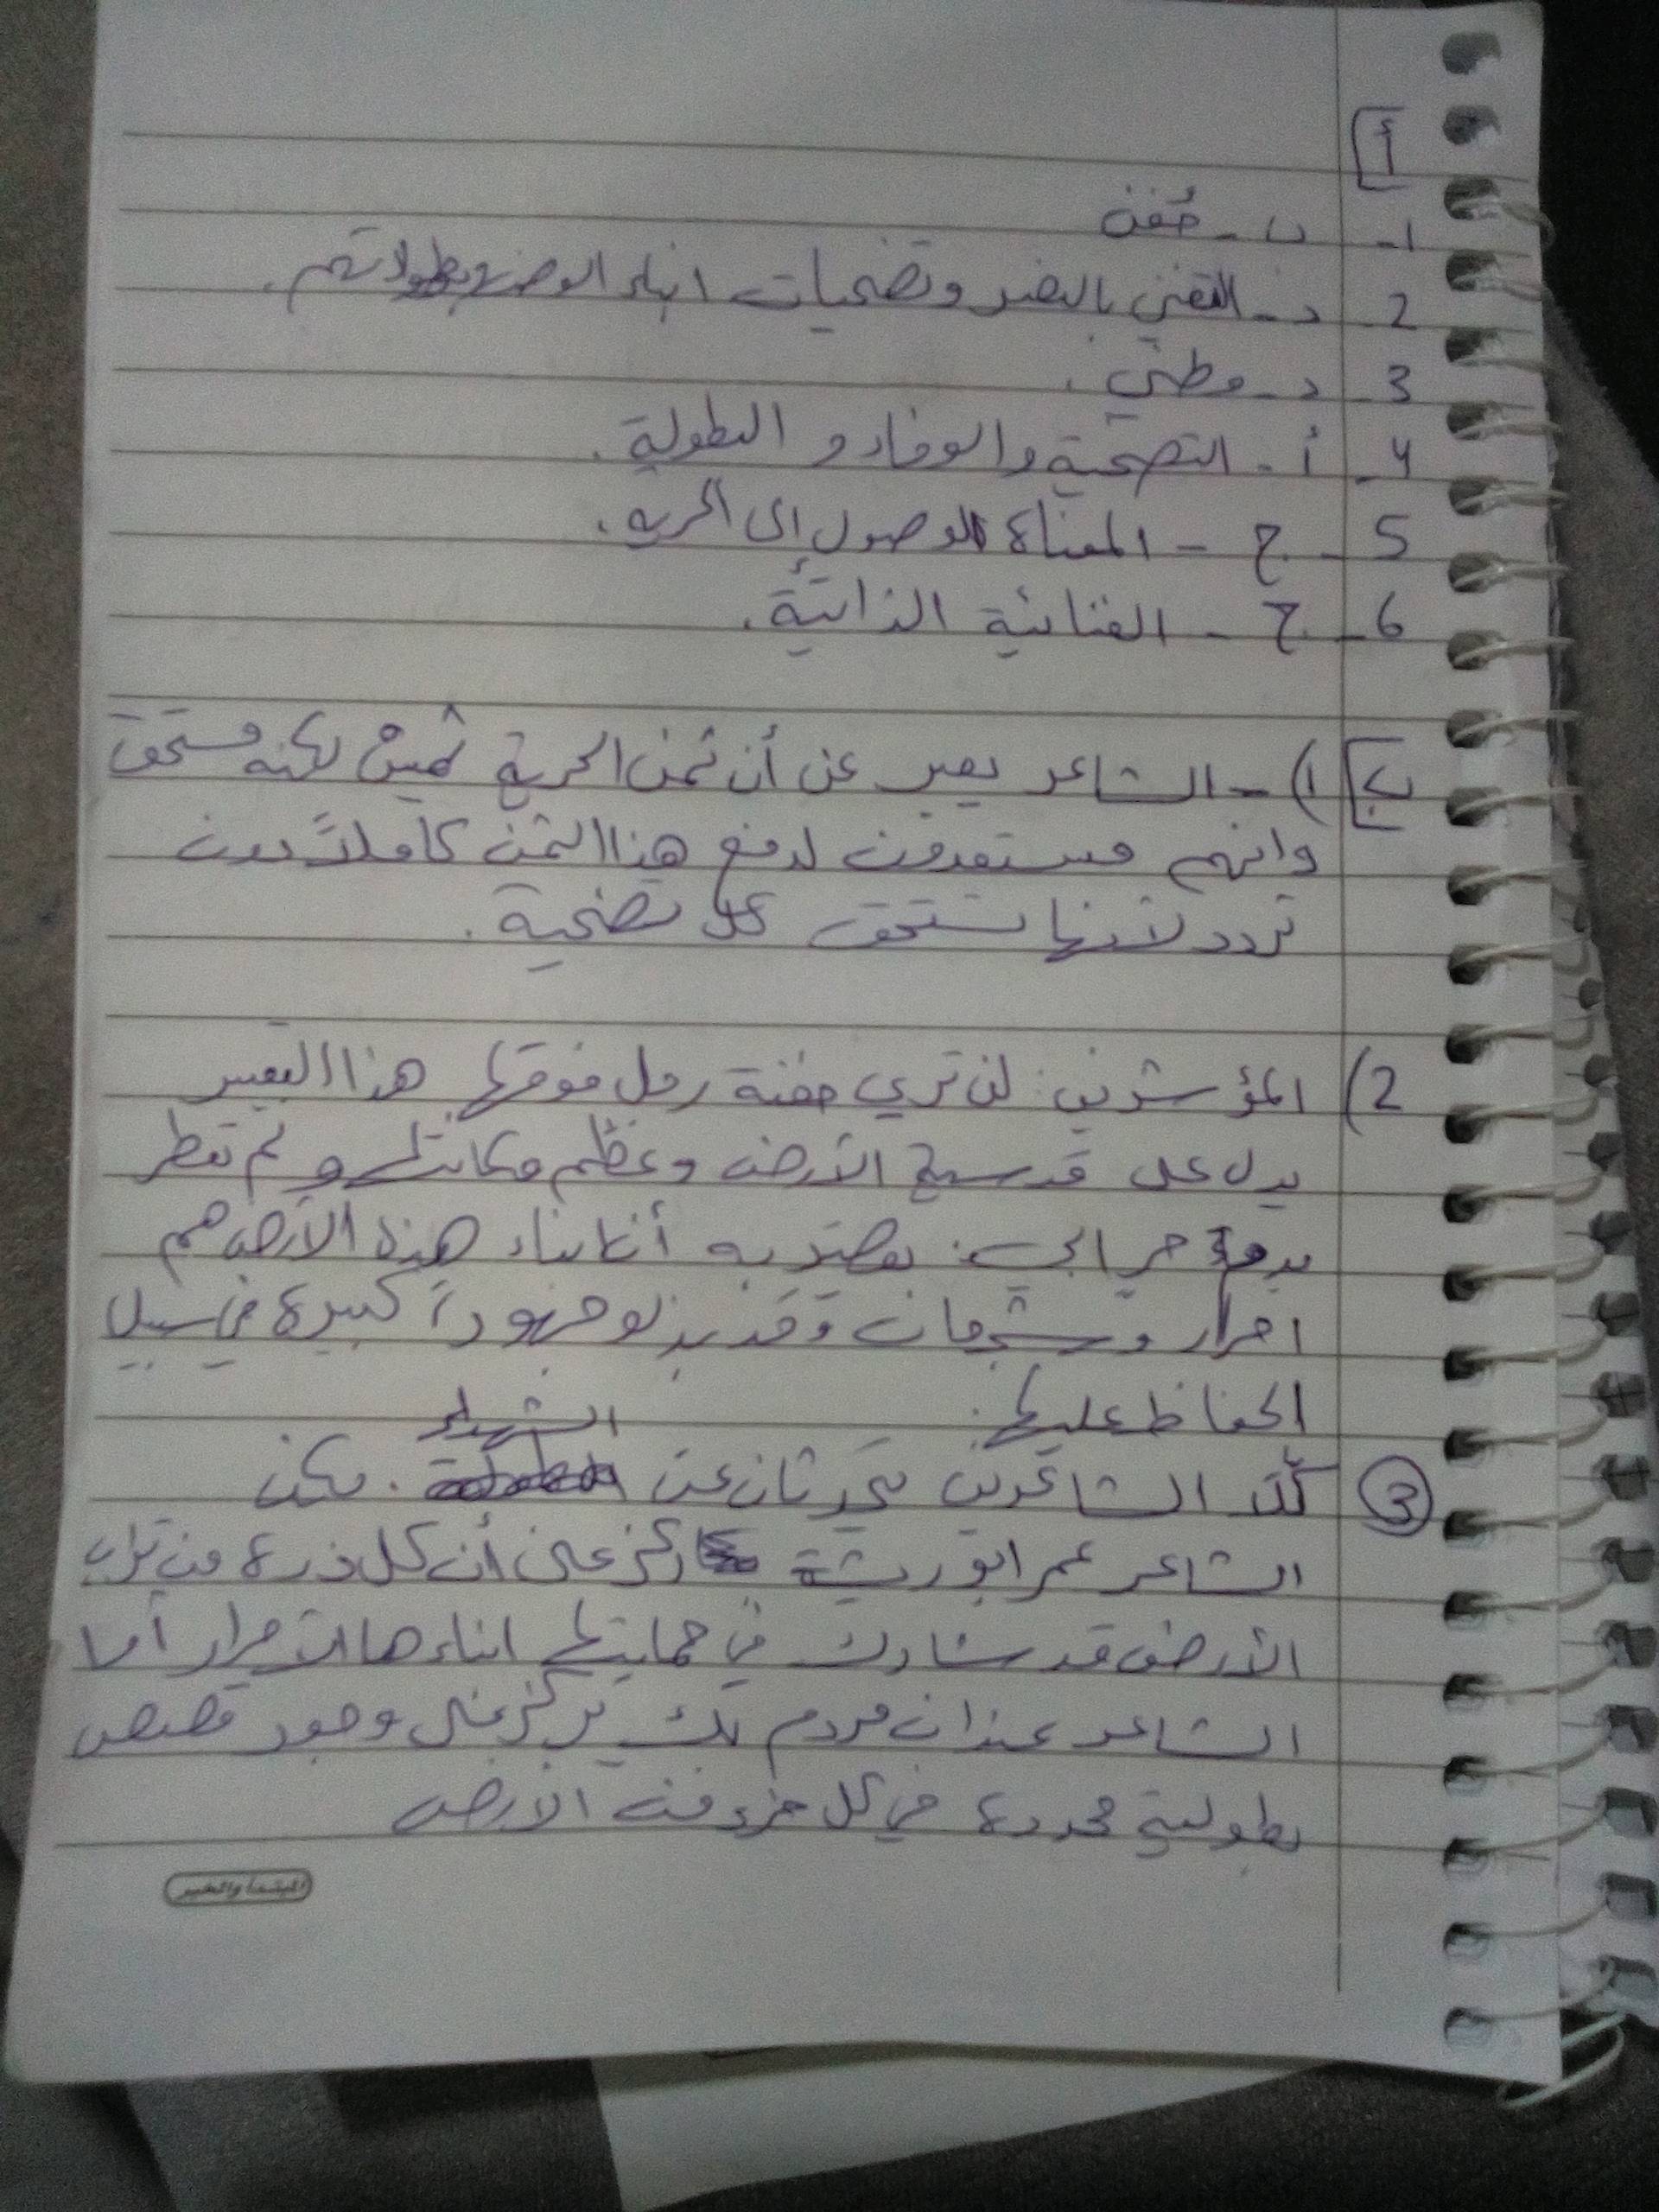 أ
1- ب - حُفَن
2- د - التغني بالنصر وتضحيات ابناء الوطن وبطولاتهم.
3- د - وطني.
4- أ - التضحية والوفاء و البطولة.
5- ج - المعناة للوصول إلى الحرية.
6- ج - الغنائية الذاتية.
ب 1) - الشاعر يعبر عن أن ثمن الحرية ثمين لكنه مستحق
وانهم مستعدون لدفع هذا الثمن كاملاً دون
تردد لأنها تستحق كل تضحية.
2) المؤشرين: لن تري حفنة رمل فوقها هذا التعبير
يدل على قدسية الأرض وعظم مكانتها و لم تعطر
بدما حر ابي: يقصد به أن ابناء هذه الأرض هم
احرار و شجعان وقد بذلو جهوداً كبيرة في سبيل
الحفاظ عليها.
3 كلا الشاعرين يتحدثان عن الشهداء. لكن
الشاعر عمر ابو ريشة ركز على أن كل ذرة من تراب
الأرض قد شارك في حمايتها ابناءها الأحرار أما
الشاعر عدنان مردم بك يركز على وجود قصص
بطولية محددة في كل جزء من الارض
المبتدأ والخبر